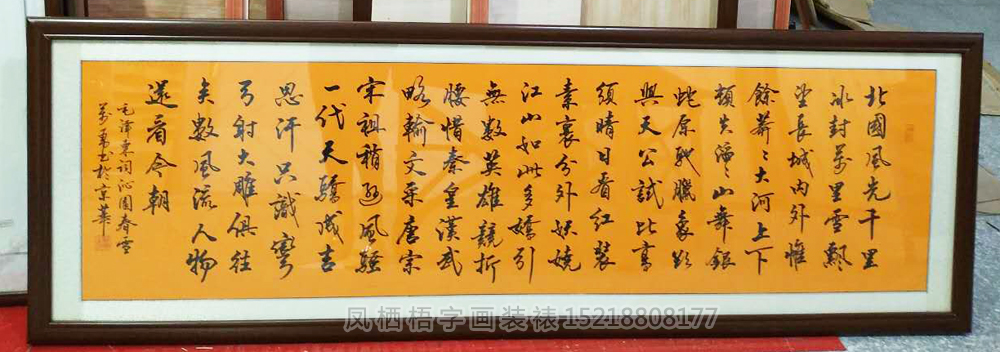 北國風光千里
冰封萬里雪飄
望長城內外惟
餘莽〻大河上下
頓失滔〻山舞銀
蛇原馳臘象欲
與天公試比高
須晴日看紅裝
素裹分外妖嬈
江山如此多嬌引
無數英雄競折
腰惜秦皇漢武
略輸文采唐宗
宋祖稍遜風騷
一代天驕成吉
思汗只識彎
弓射大雕俱往
矣數風流人物
還看今朝
毛澤東詞沁園春雪
書於京華
凤栖梧字画装裱15218808177